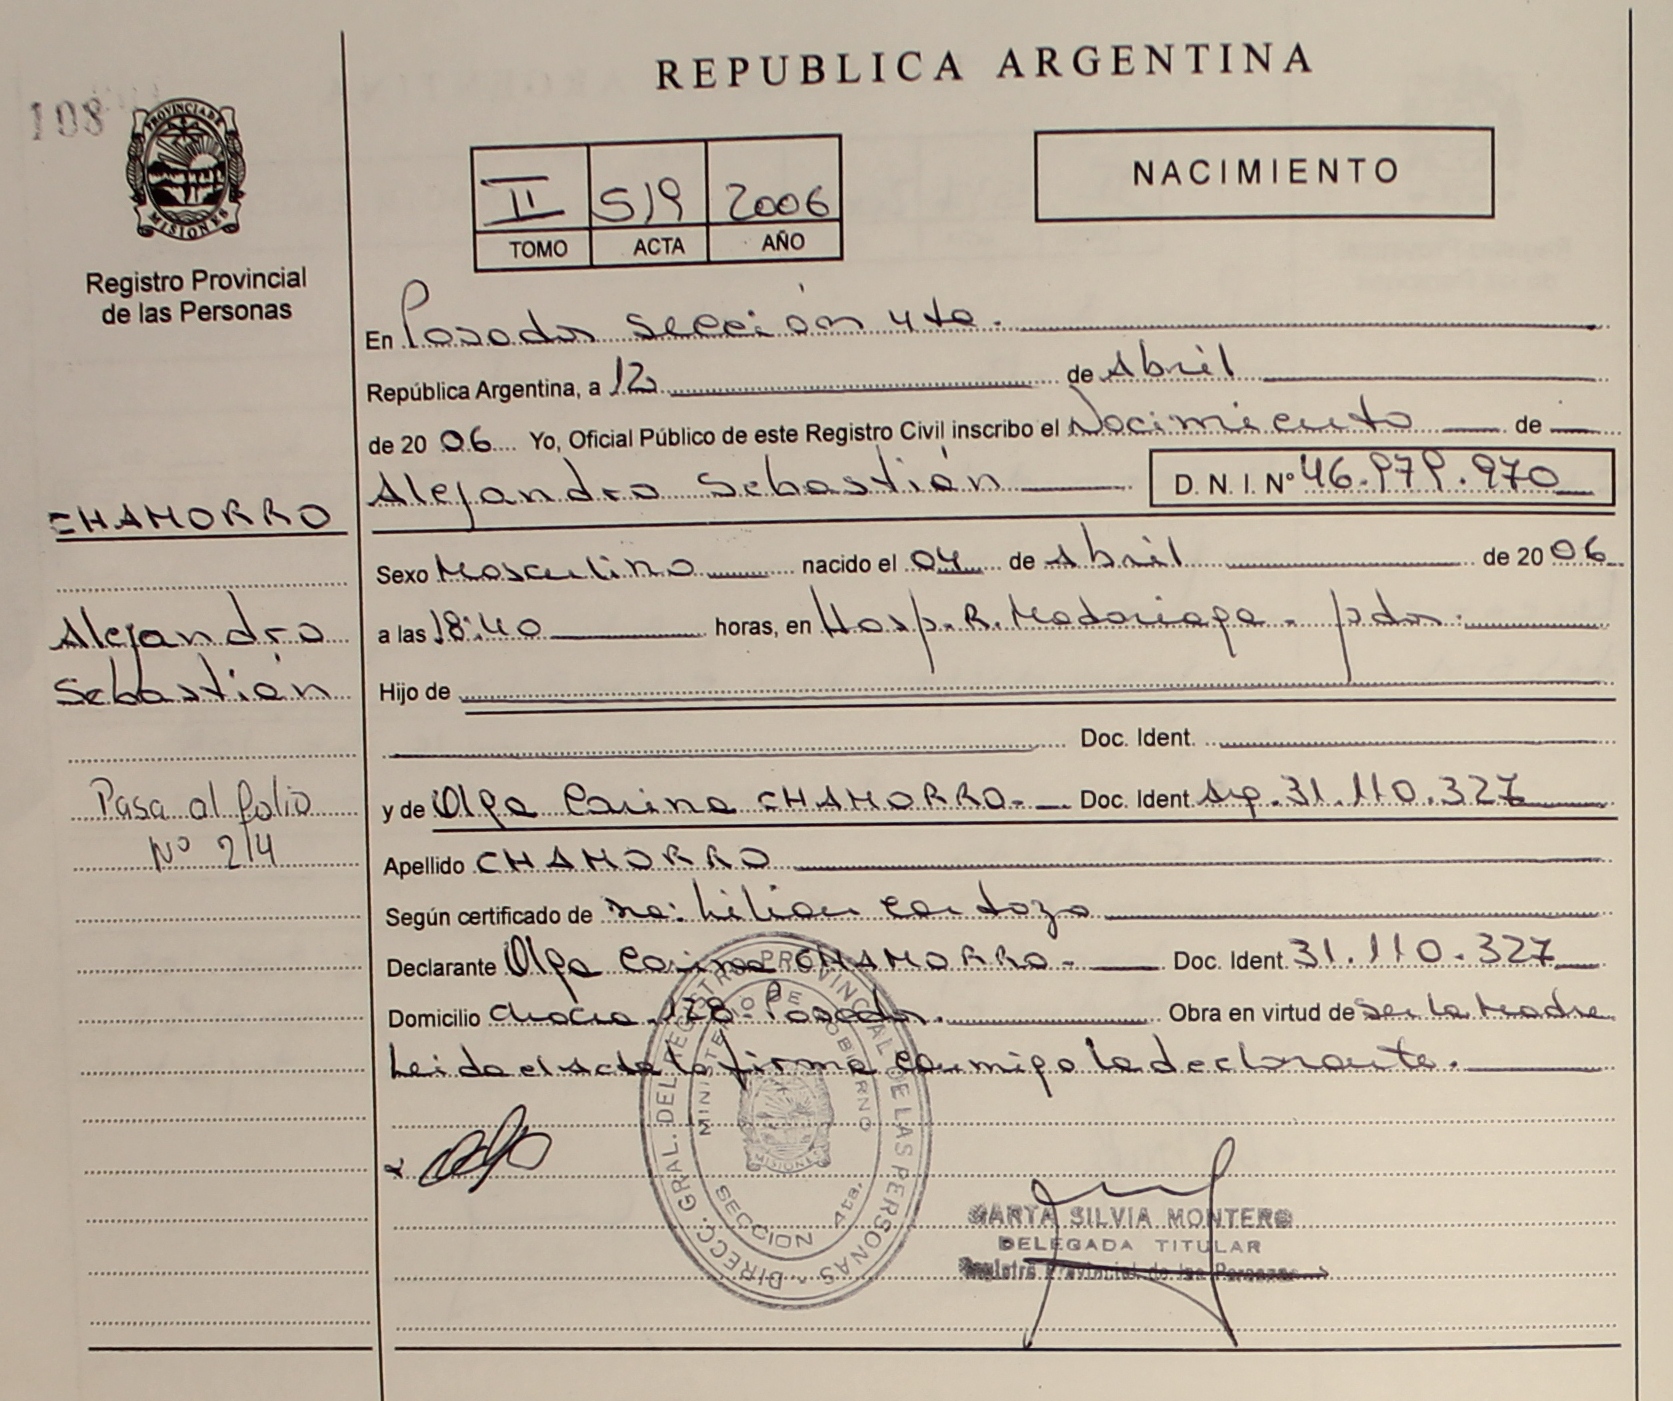 REPUBLICA ARGENTINA
108
PROVINCIA DE MISIONES
Registro Provincial
de las Personas
II 519 2006
TOMO ACTA AÑO
NACIMIENTO
En Posadas sección 4ta.
República Argentina, a 12 de Abril
de 2006 Yo, Oficial Público de este Registro Civil inscribo el Nacimiento de
Alejandro Sebastián D. N. I. Nº 46.979.970
CHAMORRO
Sexo Masculino nacido el 04 de Abril de 2006
Alejandro
a las 18:40 horas, en Hosp. R. Madariaga - pdas.
Sebastián
Hijo de
Doc. Ident.
Pasa al folio
y de Olga Carina CHAMORRO- Doc. Ident. Arg. 31.110.327
Nº 214
Apellido CHAMORRO
Según certificado de Lilian Cardozo
Declarante Olga Carina CHAMORRO- Doc. Ident. 31.110.327
Domicilio 178 - Posadas. Obra en virtud de ser la Madre
Leida el Acta la firma conmigo la declarante.
DIRECC. GRAL. DEL REGISTRO PROVINCIAL DE LAS PERSONAS
MINISTERIO DE GOBIERNO
MISIONES
SECCION 4ta.
MARTA SILVIA MONTERO
DELEGADA TITULAR
Registro Provincial de las Personas